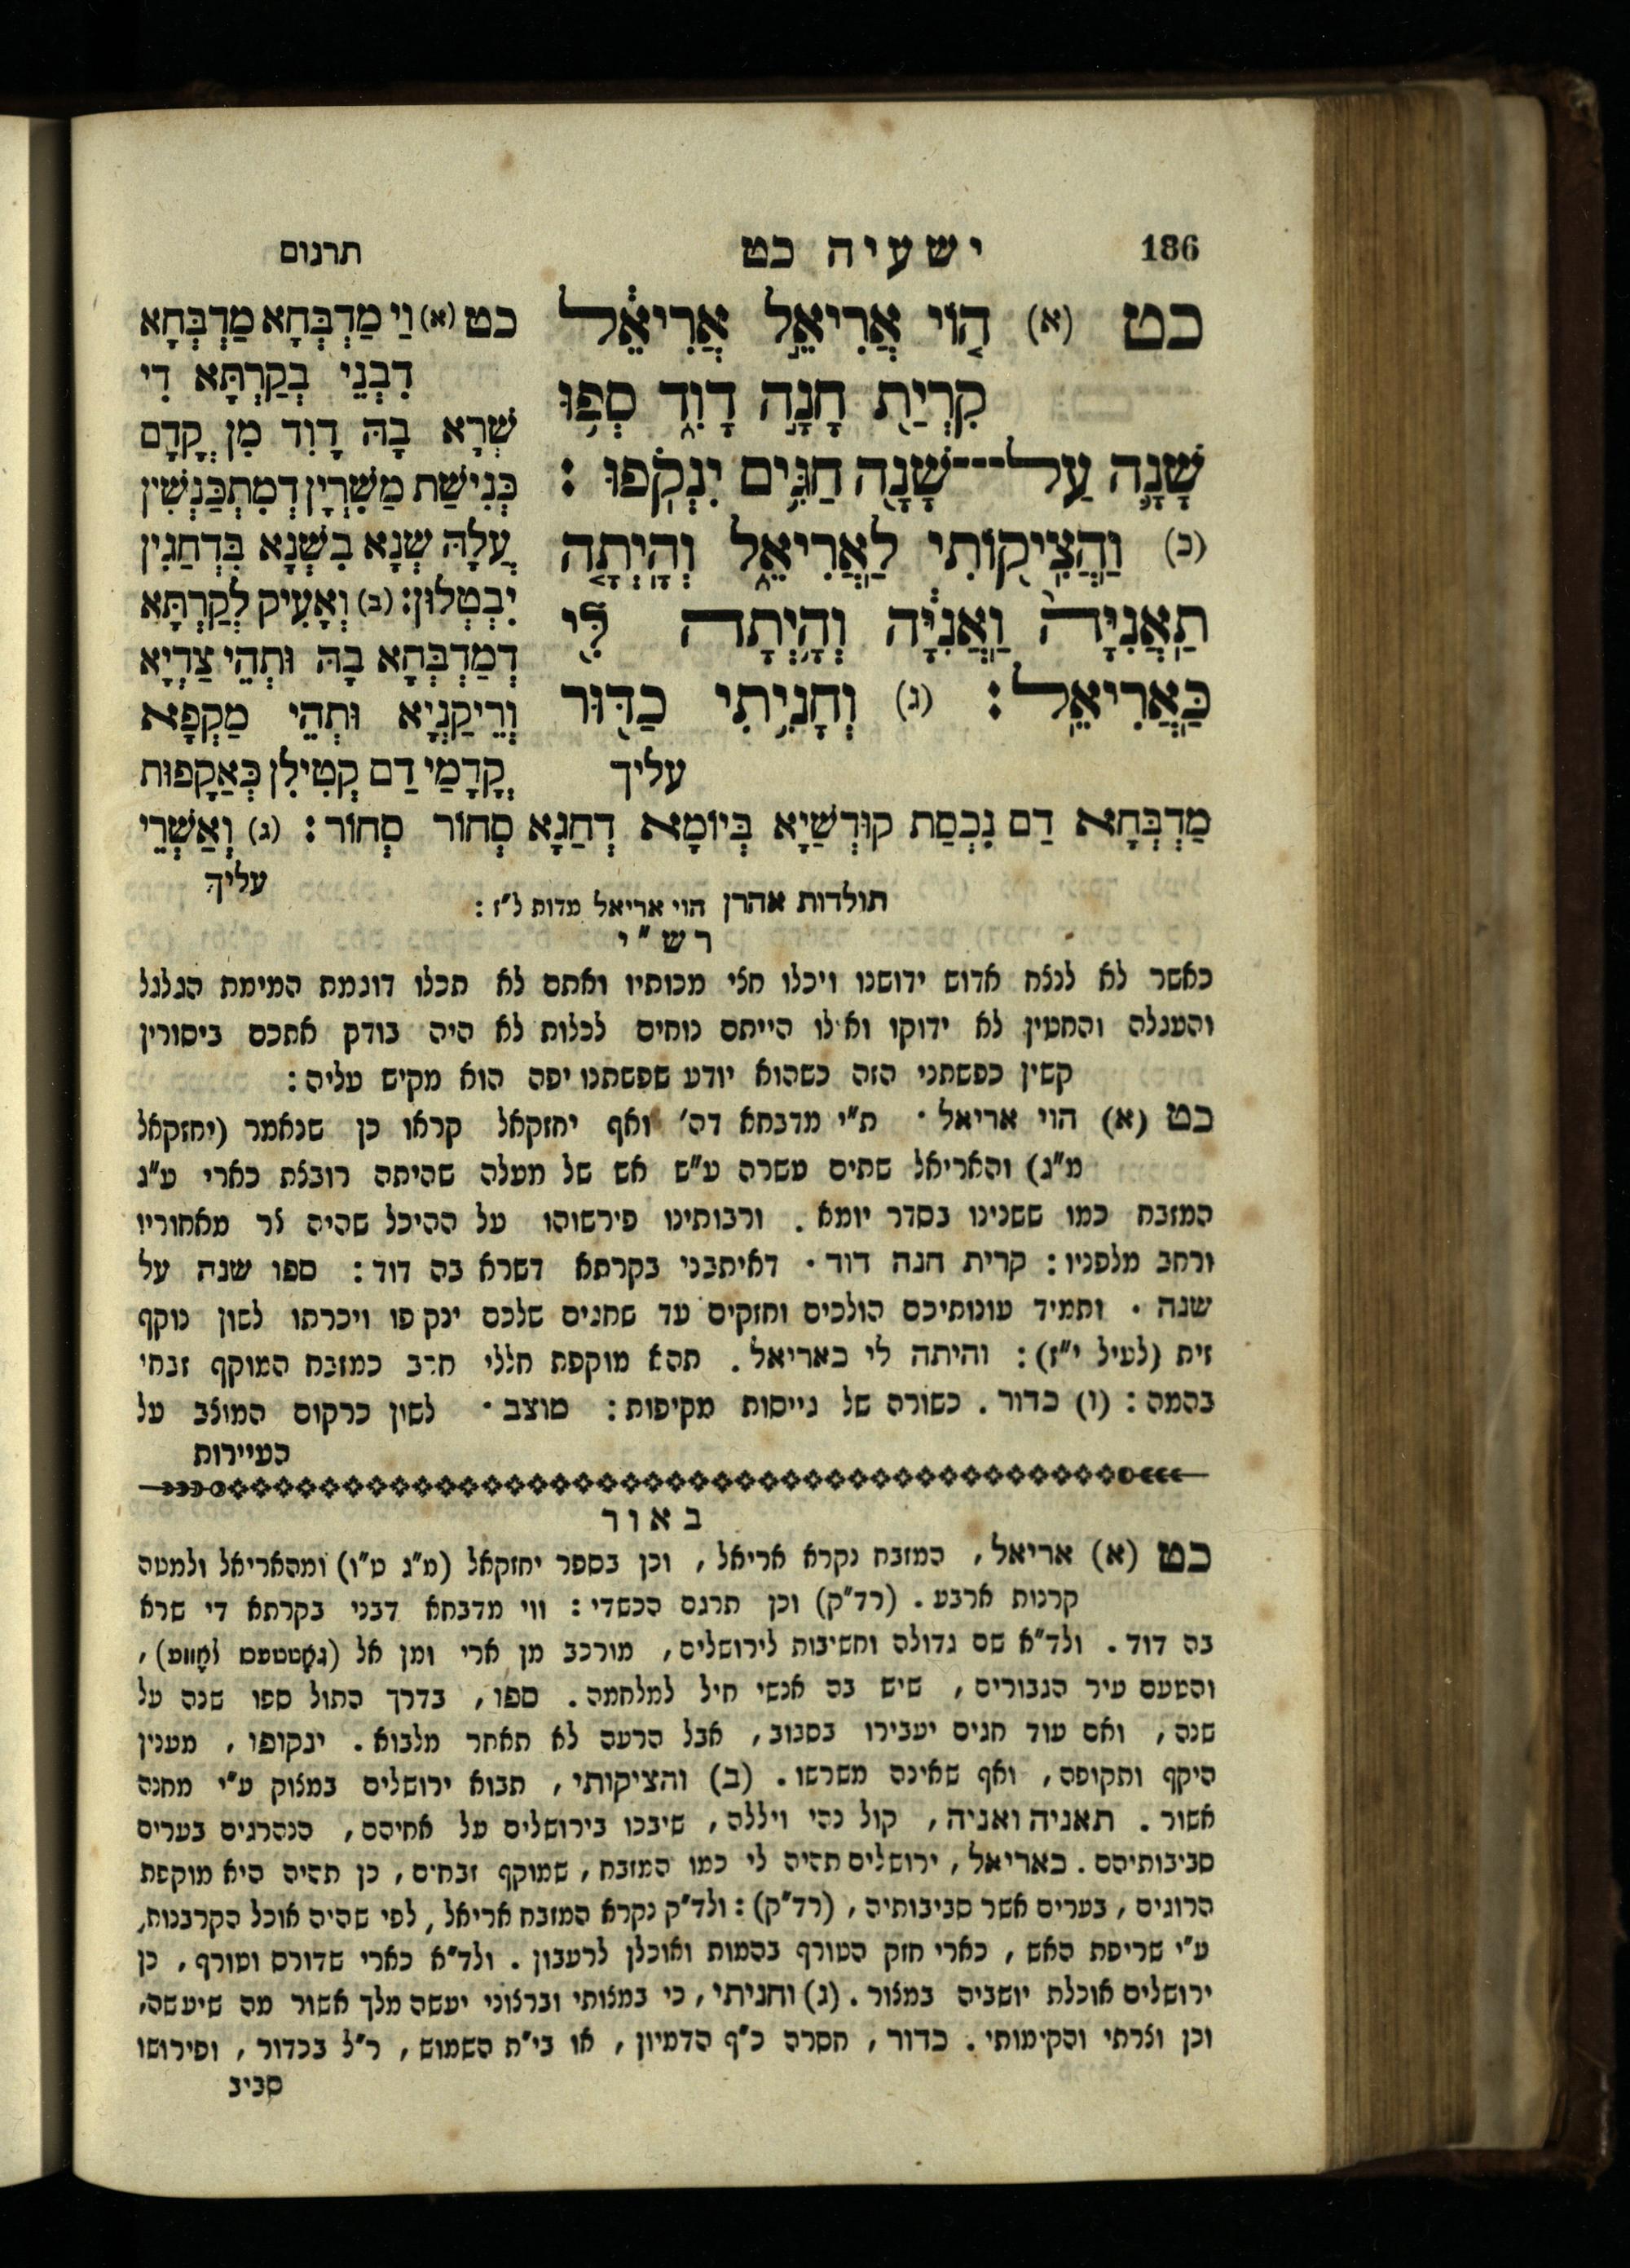 186
ישעיה כט
תרגום
כט (א) הוֹי אֲרִיאֵל אֲרִיאֵל
קִרְיַת חָנָה דָוִד סְפוּ
שָׁנָה עַל־שָׁנָה חַגִּים יִנְקֹפוּ :
(ב) וַהֲצִיקוֹתִי לַאֲרִיאֵל וְהָיְתָה
תַאֲנִיָּה וַאֲנִיָּה וְהָיְתָה לִּי
כַּאֲרִיאֵל : (ג) וְחָנִיתִי כַדּוּר
עליך
כט (א) וַי מַדְבְּחָא מַדְבְּחָא
דִבְנֵי בְקַרְתָּא דִי
שְׁרָא בָהּ דָוִד מִן קֳדָם
כְּנִישַׁת מַשִׁרְיָן דְמִתְכַּנְשִׁין
עֲלָהּ שְׁנָא בִשְׁנָא בִּדְחַגִין
יִבְטְלוּן: (ב) וְאָעִיק לְקַרְתָּא
דְמַדְבְּחָא בָהּ וּתְהֵי צַדְיָא
וְרֵיקַנְיָא וּתְהֵי מַקְפָא
קֳדָמַי דַם קְטִילִן כְּאַקָפוּת
מַדְבְּחָא דַם נִכְסַת קוּדְשַׁיָא בְּיוֹמָא דְחַגָא סְחוֹר סְחוֹר : (ג) וְאַשְׁרֵי
עליך
תולדות אהרן הוי אריאל מדות ל״ז :
רש״י
כאשר לא לנצח אדוש ידושנו ויכלו חצי מכותיו ואתם לא תכלו דוגמת המימת הגלגל
והעגלה והחטין לא ידוקו ואילו הייתם נוחים לכלות לא היה בודק אתכם ביסורין
קשין כפשתני הזה כשהוא יודע שפשתנו יפה הוא מקיש עליה :
כט (א) הוי אריאל · ת״י מדבחא דה׳ ואף יחזקאל קראו כן שנאמר (יחזקאל
מ״ג) והאריאל שתים עשרה ע״ש אש של מעלה שהיתה רובצת כארי ע״ג
המזבח כמו ששנינו בסדר יומא . ורבותינו פירשוהו על ההיכל שהיה צר מאחוריו
ורחב מלפניו : קרית חנה דוד · דאיתבני בקרתא דשרא בה דוד : ספו שנה על
שנה · ותמיד עונותיכם הולכים וחזקים עד שחגים שלכם ינקפו ויכרתו לשון נוקף
זית (לעיל י״ז) : והיתה לי כאריאל . תהא מוקפת חללי חרב כמזבח המוקף זבחי
בהמה : (ו) כדור . כשורה של גייסות מקיפות : מוצב · לשון כרקום המוצב על
העיירות
באור
כט (א) אריאל , המזבח נקרא אריאל , וכן בספר יחזקאל (מ״ג ט״ו) ומהאריאל ולמטה
קרנות ארבע . (רד״ק) וכן תרגם הכשדי : ווי מדבחא דבני בקרתא די שרא
בה דוד . ולד״א שם גדולה וחשיבות לירושלים , מורכב מן ארי ומן אל (גאָטטעס לאָווע) ,
והטעם עיר הגבורים , שיש בה אנשי חיל למלחמה . ספו , בדרך התול ספו שנה על
שנה , ואם עוד חגים יעבירו בסבוב , אבל הרעה לא תאחר מלבוא . ינקופו , מענין
היקף ותקופה , ואף שאינה משרשו . (ב) והציקותי , תבוא ירושלים במצוק ע״י מחנה
אשור . תאניה ואניה , קול נהי ויללה , שיבכו בירושלים על אחיהם , הנהרגים בערים
סביבותיהם . כאריאל , ירושלים תהיה לי כמו המזבח , שמוקף זבחים , כן תהיה היא מוקפת
הרוגים , בערים אשר סביבותיה , (רד״ק) : ולד״ק נקרא המזבח אריאל , לפי שהיה אוכל הקרבנות,
ע״י שריפת האש , כארי חזק הטורף בהמות ואוכלן לרעבון . ולד״א כארי שדורס וטורף , כן
ירושלים אוכלת יושביה במצור . (ג) וחניתי , כי במצותי וברצוני יעשה מלך אשור מה שיעשה,
וכן וצרתי והקימותי . כדור , חסרה כ״ף הדמיון , או בי״ת השמוש , ר״ל בכדור , ופירושו
סביב